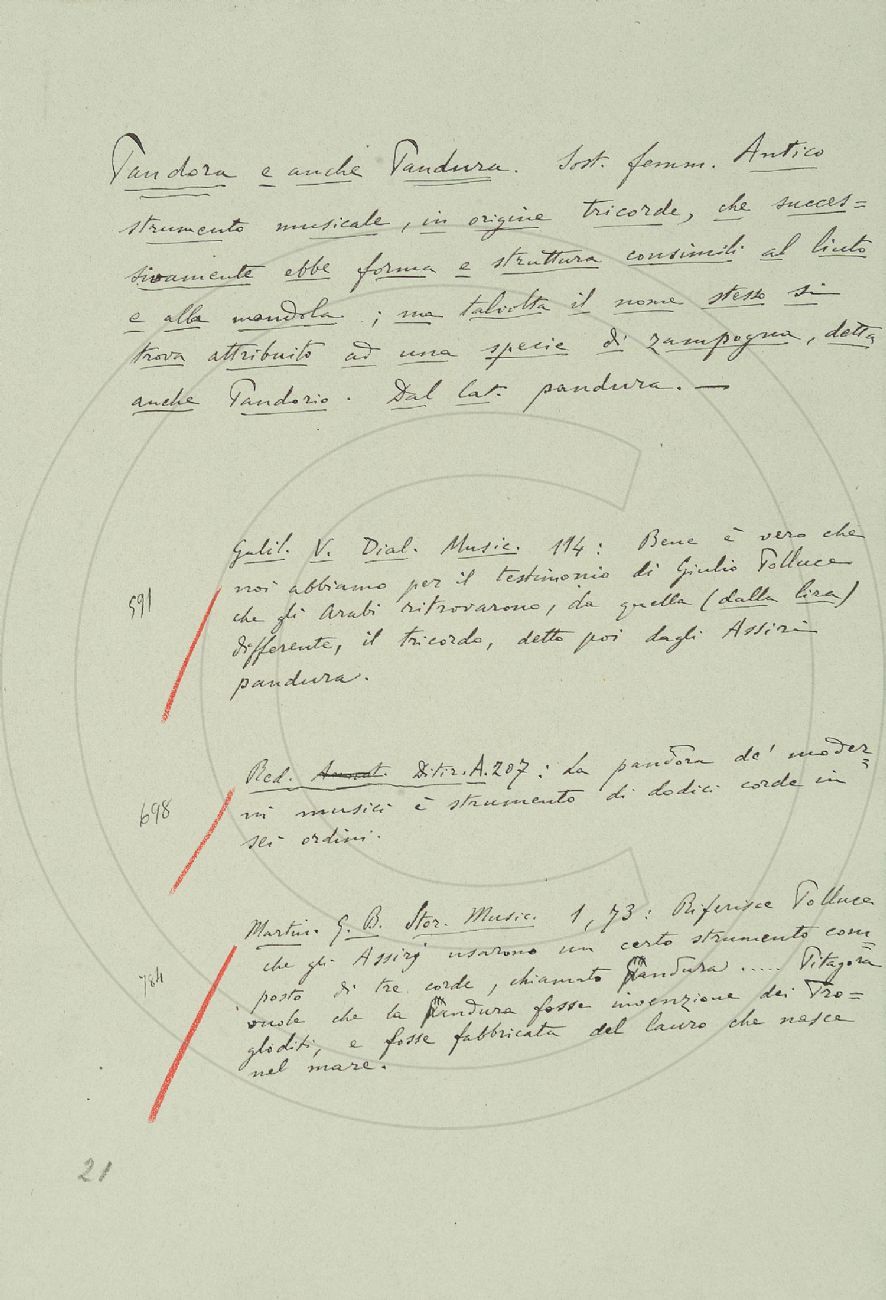 Pandora e anche Pandura. Sost. femm. Antico
strumento musicale, in origine tricorde, che succes=
sivamente ebbe forma e struttura consimili al liuto
e alla mandola; ma talvolta il nome stesso si
trova attribuito ad una specie di zampogna, detta
anche Pandorio. Dal lat. pandura. —
591
Galil. V. Dial. Music. 114: Bene è vero che
noi abbiamo per il testimonio di Giulio Polluce
che gli Arabi ritrovarono, da quella (dalla lira)
differente, il tricordo, detto poi dagli Assiri
pandura.
698
Red. Annot. Ditir. A. 207: La pandora de' moder=
ni musici è strumento di dodici corde in
sei ordini.
784
Martin. G. B. Stor. Music. 1, 73: Riferisce Polluce
che gli Assirj usarono un certo strumento com=
posto di tre corde, chiamato Pandura ..... Pitagora
vuole che la Pandura fosse invenzione dei Tro=
gloditi, e fosse fabbricata del lauro che nasce
nel mare.
21